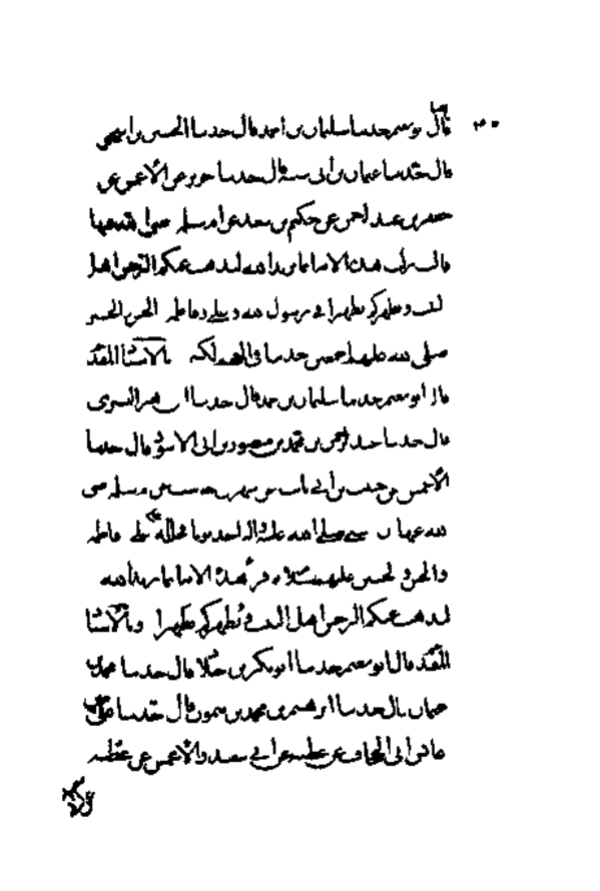 قال ابو نعيم حدثنا سليمان بن احمد قال حدثنا الحسين بن اسحق
قال حدثنا عثمان بن أبى شيبة قال حدثنا جرير عن الأعمش عن
جعفر بن عبد الرحمن عن حكيم بن سعد عن ام سلمة رضى الله عنها
قالت نزلت هذه الاية انما يريد الله ليذهب عنكم الرجس اهل
البيت ويطهركم تطهيرا فى رسول الله وعلى وفاطمة والحسن والحسين
صلى الله عليهم اجمعين بالاسناد المقدم
قال ابو نعيم حدثنا سليمان بن احمد قال حدثنا
قال حدثنا عبد الرحمن بن محمد بن منصور بن ابى الاسود قال حدثنا
الأعمش عن حبيب بن أبى ثابت عن شهر بن حوشب عن ام سلمة رضى
الله عنها ان النبى صلى الله عليه واله اخذ ثوبا فجلله على فاطمة
والحسن والحسين عليهم السلام وقرأ هذه الاية انما يريد الله
ليذهب عنكم الرجس اهل البيت ويطهركم تطهيرا وبالاسناد
المقدم قال ابو نعيم حدثنا ابو بكر بن خلاد قال حدثنا محمد بن
عثمان قال حدثنا ابراهيم بن محمد بن ميمون قال حدثنا على بن
عابس عن ابى الجحاف عن عطية عن أبى سعيد والأعمش عن عطية